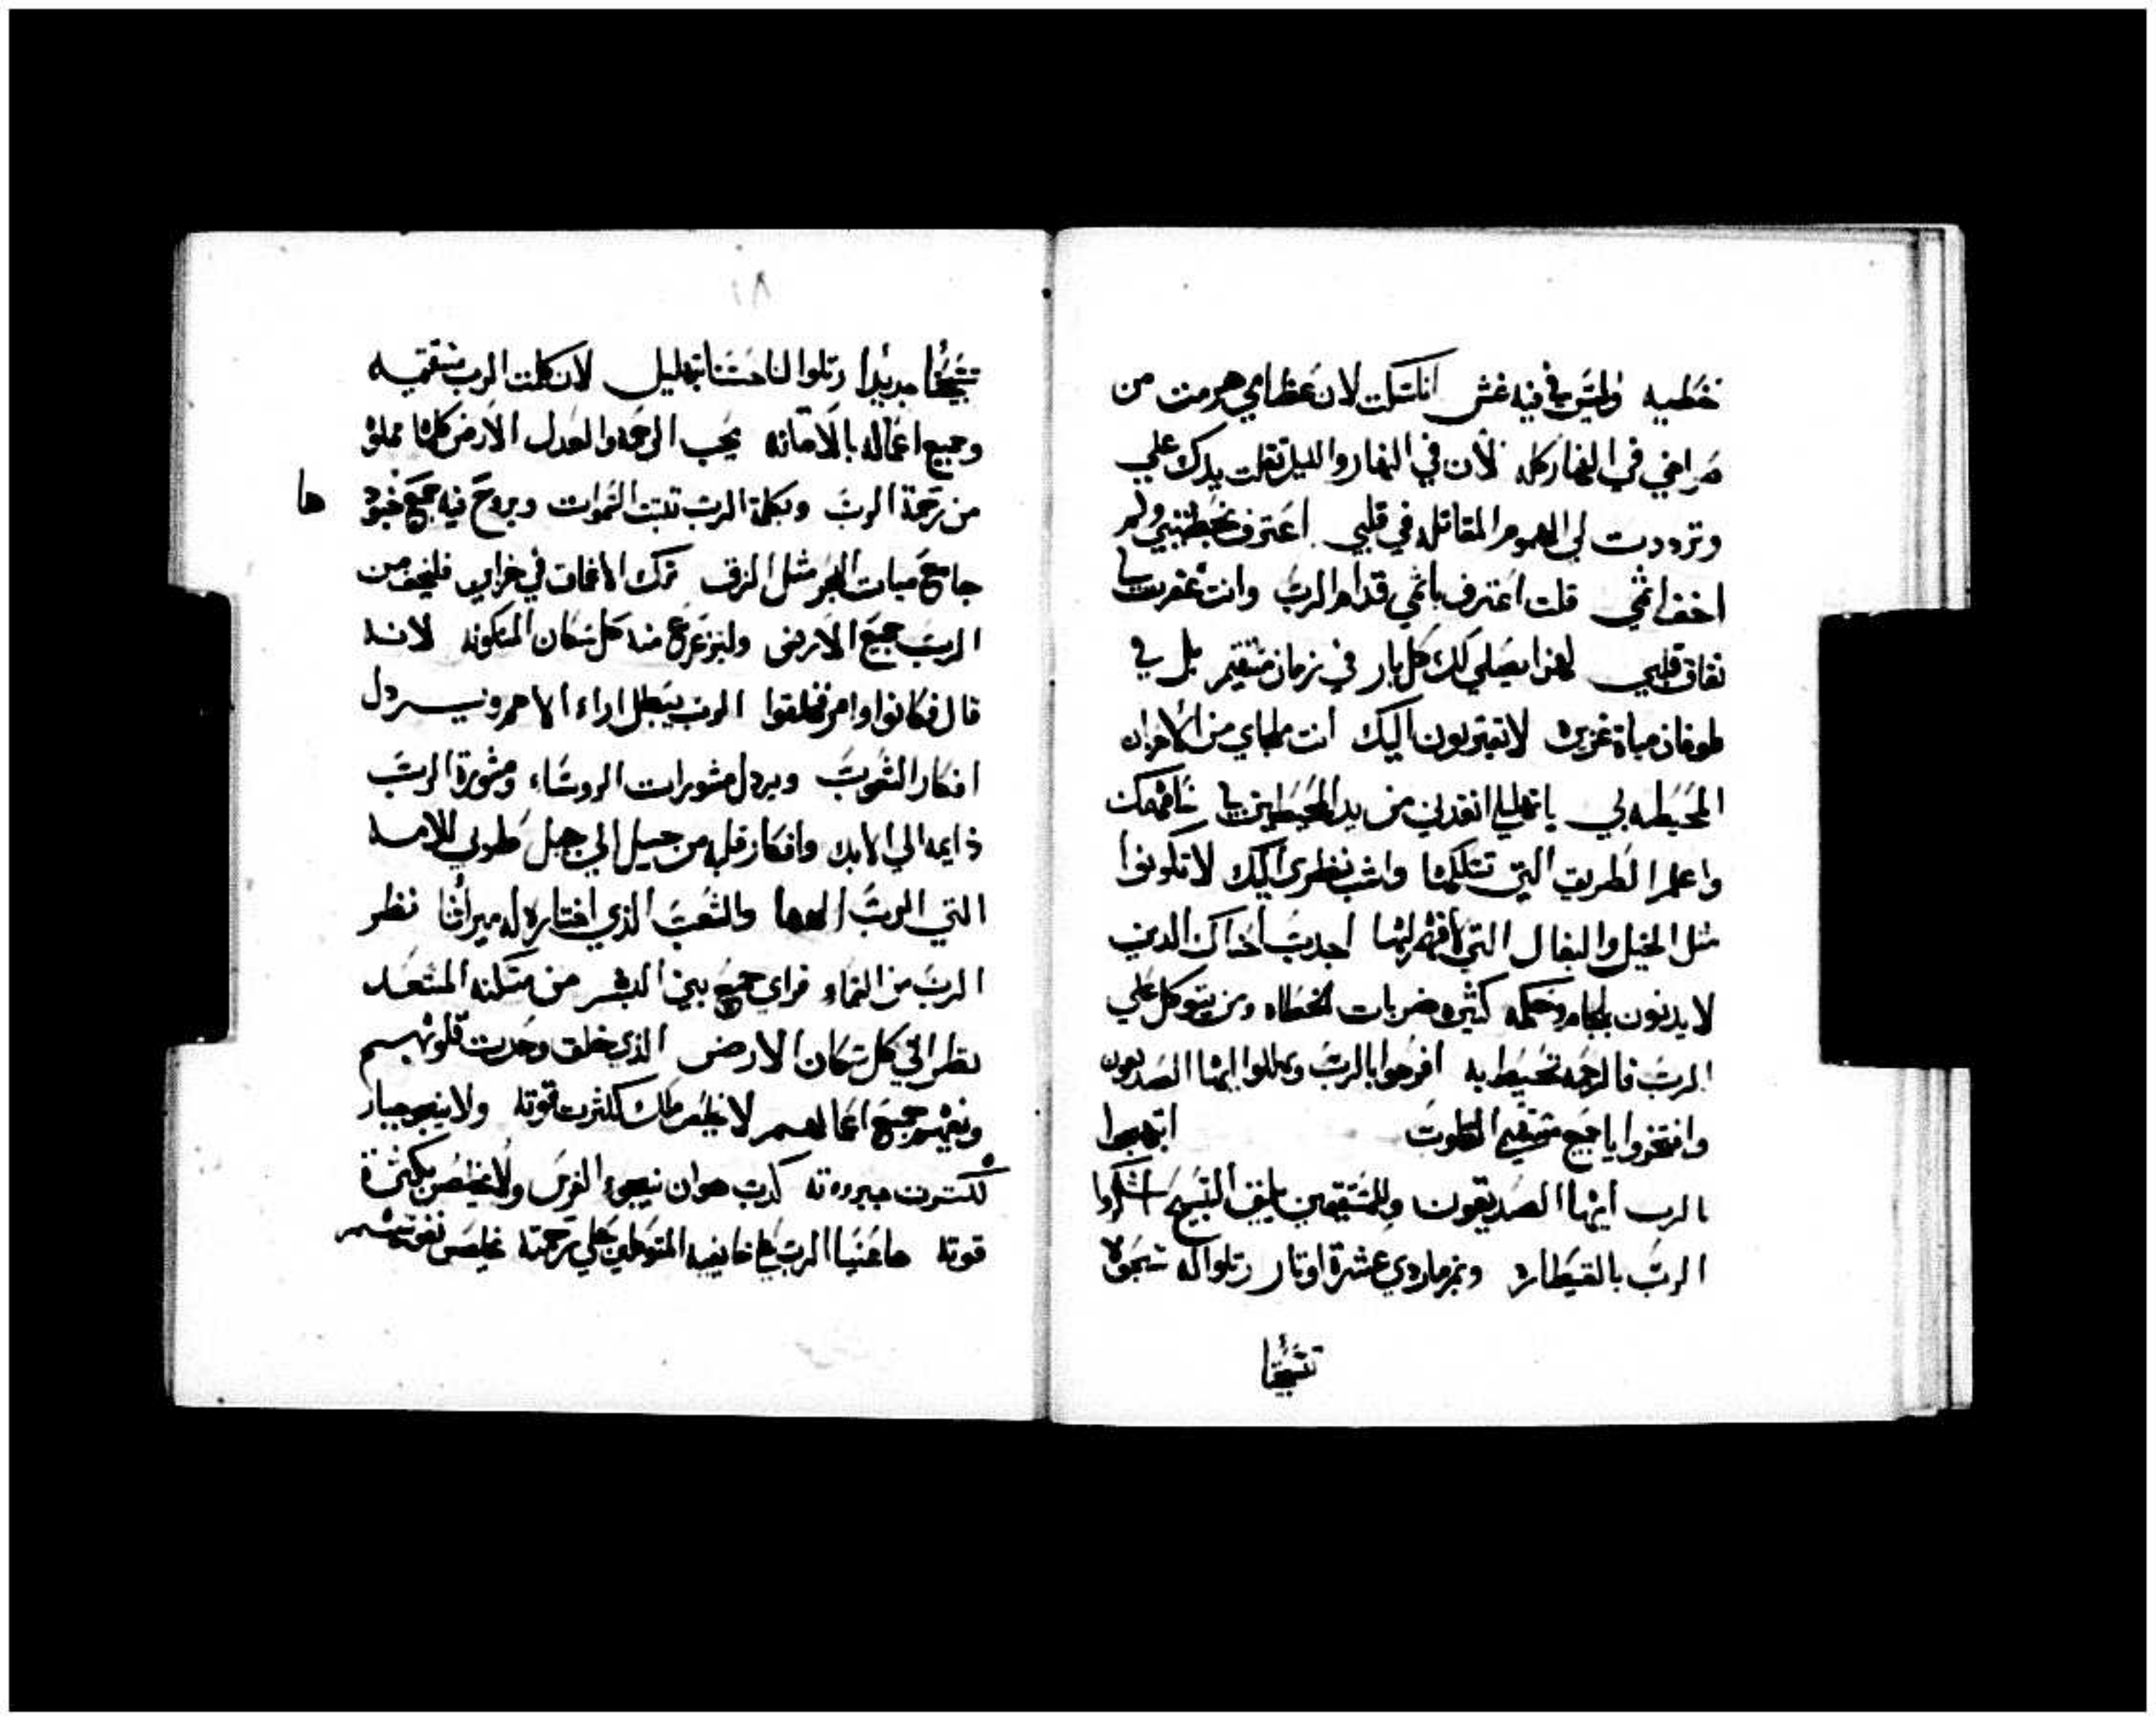 خطيه وليس في فيه غش انا سكت لان عظامي هرمت من
صراخي في النهار كله لأن في النهار والليل تقلت يدك علي
وترددت لي الهموم المقاتله في قلبي اعترف بخطيتي ولم
اخف اثمي قلت اعترف باثمي قدام الرب وانت غفرت
نفاق قلبي لهذا يصلي لك كل بار في زمان متقيم بل في
طوفان مياة غزيره لا يقتربون اليك انت ملجاي من الاحزان
المحيطه بي يا تهليلي انقدني من يد المحيطين بي سافهمك
واعلم الطريق التي تسلكها واتبت نظري اليك لا تكونوا
مثل الخيل والبغال التي لا فهم لها اجدب احناك الدين
لا يدنون بلجام وحكمه كثيره ضربات الخطاه ومن يتوكل علي
الرب فالرحمه تحيط به افرحوا بالرب وهللوا ايها الصديقون
وافتخروا يا جميع مستقيمي القلوب ابتهجوا
بالرب ايها الصديقون وللمستقيمين يليق التسبيح اشكروا
الرب بالقيتار وبمزمار دي عشرة اوتار رتلوا له سبحوه
تسبيحًا
١٨
تسبيحًا جديدًا رتلوا له حسنًا بتهليل لان كلمت الرب مستقيمه
وجميع اعماله بالأمانه يحب الرحمه والعدل الأرض كلها مملوه
من رحمة الرب وبكلمة الرب تبتت السموات وبروح فيه جميع جنود
ها
جامع مياه البحر مثل الزق ترك الاغماق في خزاين فليخف من
الرب جميع الأرض وليتزعزع منه كل سكان المسكونه لانه
قال فكانوا وامر فخلقوا الرب يبطل اراء الامم ويردل
افكار الشعوب ويردل مشورات الروساء ومشورة الرب
دايمه الي الابد وافكار قلبه من جيل الي جيل طوبي للامه
التي الرب الهها والشعب الذي اختاره له ميراثا نظر
الرب من السماء فراي جميع بني البشر من مسكنه المستعد
نظر الي كل سكان الارض الذي خلق وحده قلوبهم
ويفهم جميع اعمالهم لا يخلص ملك بكثرت قوته ولا ينجو جبار
بكثرت جبروته كدب هو ان ينجوء الفرس ولا يخلص بكثرة
قوته ها عينا الرب علي خايفيه المتوكلين علي رحمته يخلص نفوسهم